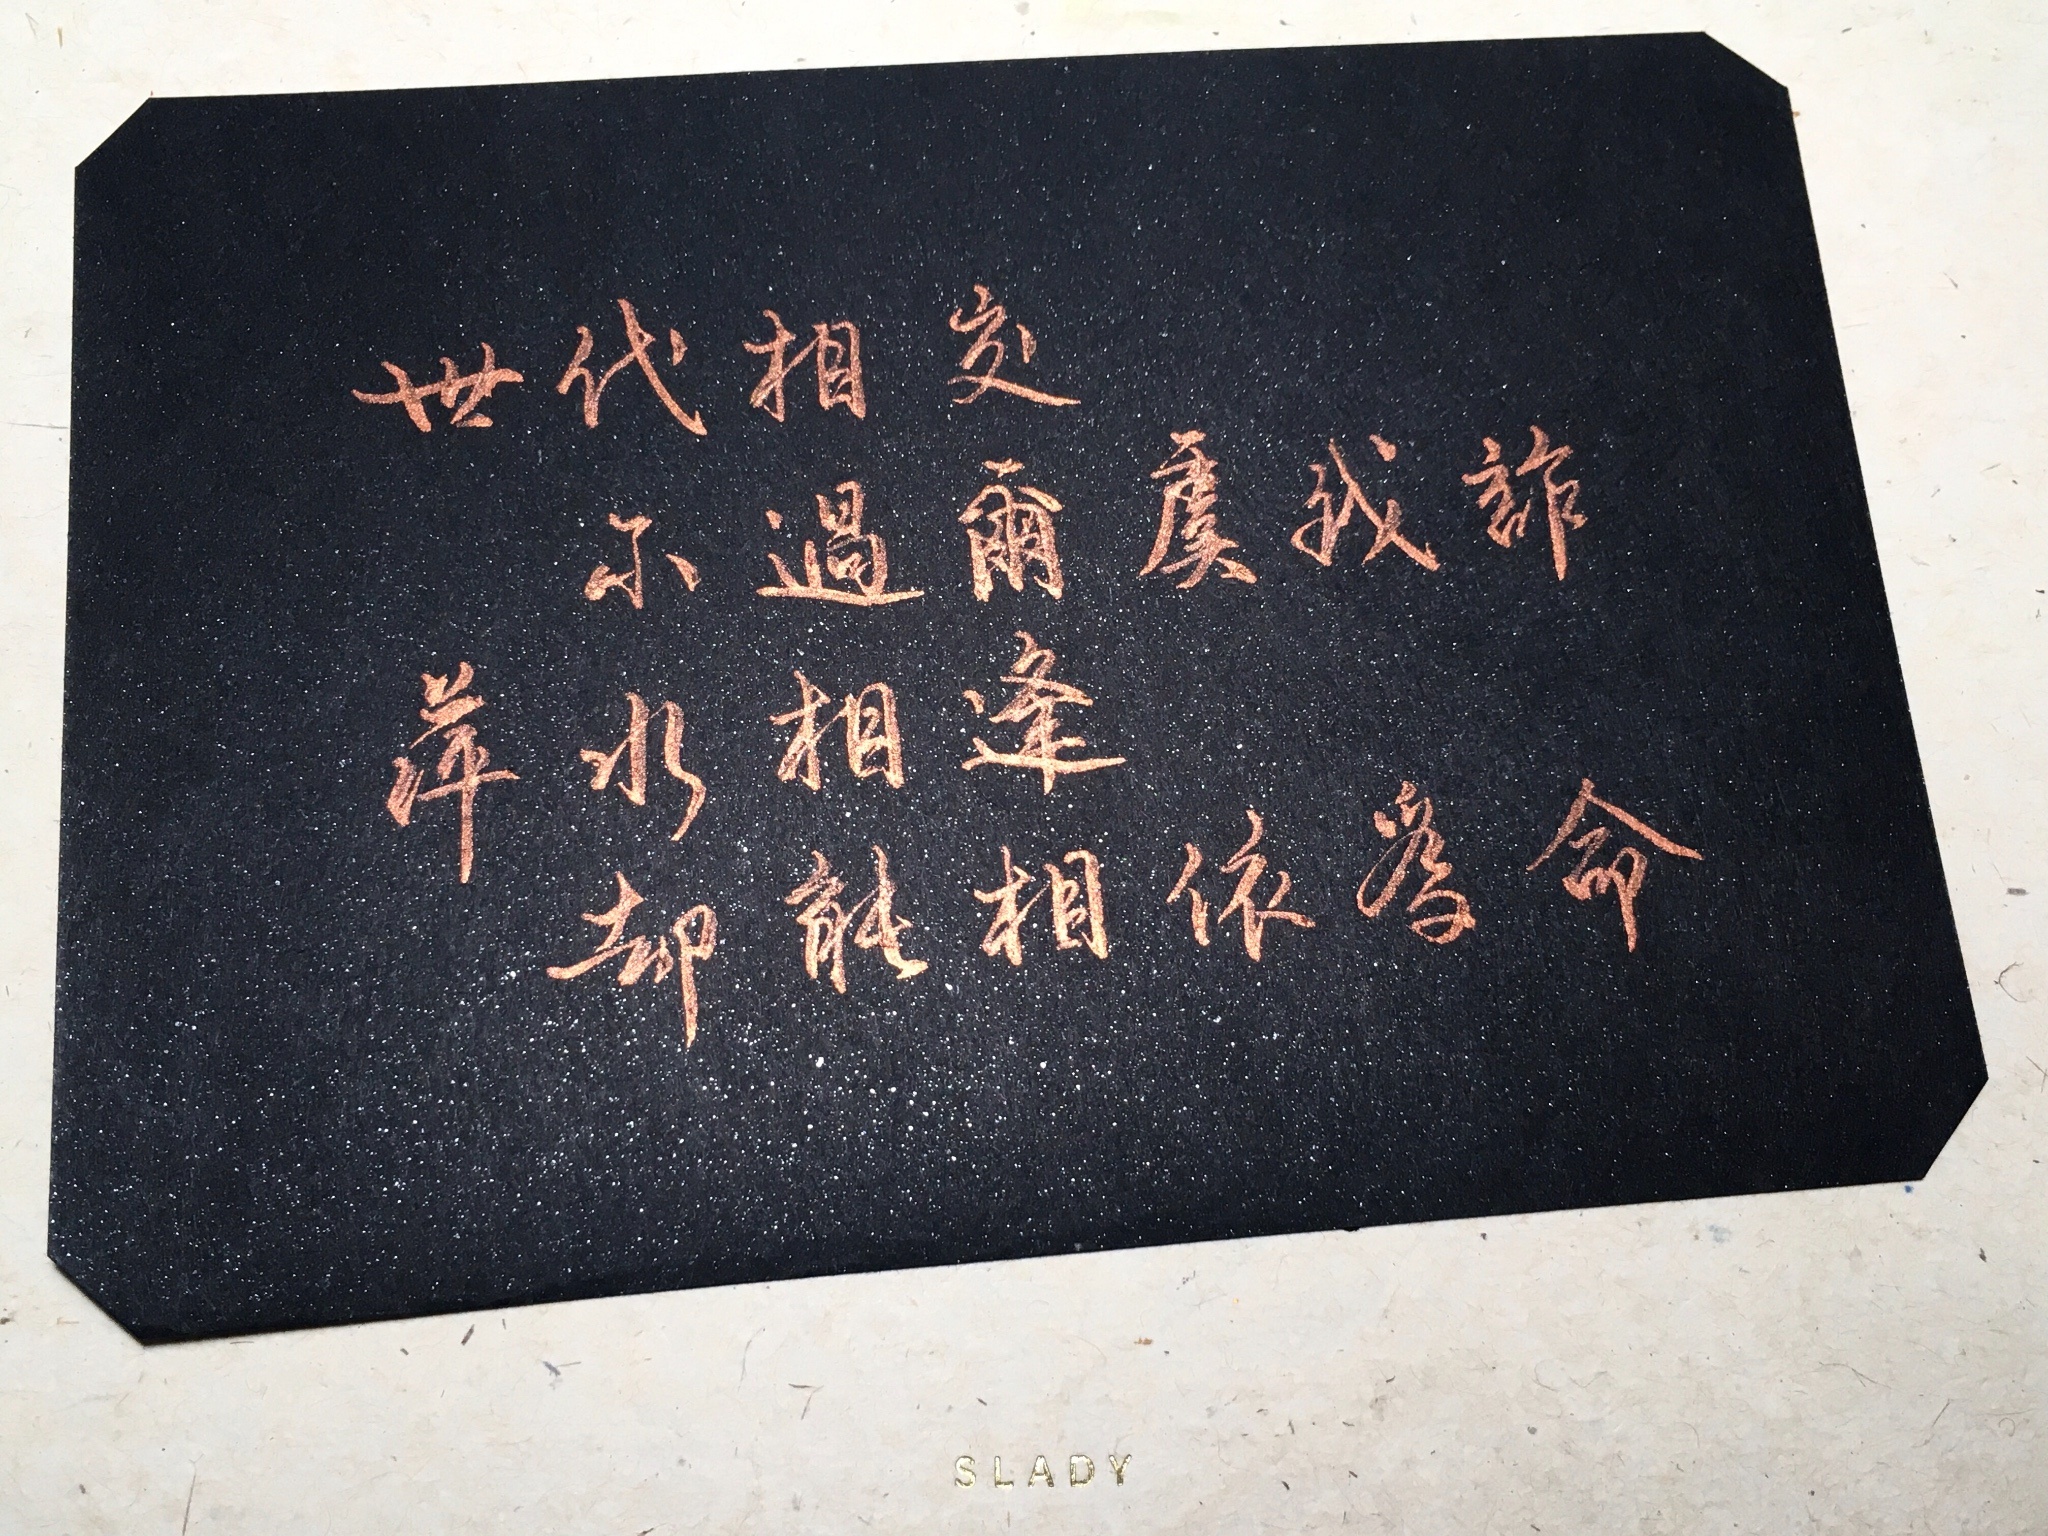 世代相交
不過爾虞我詐
萍水相逢
却能相依爲命
SLADY